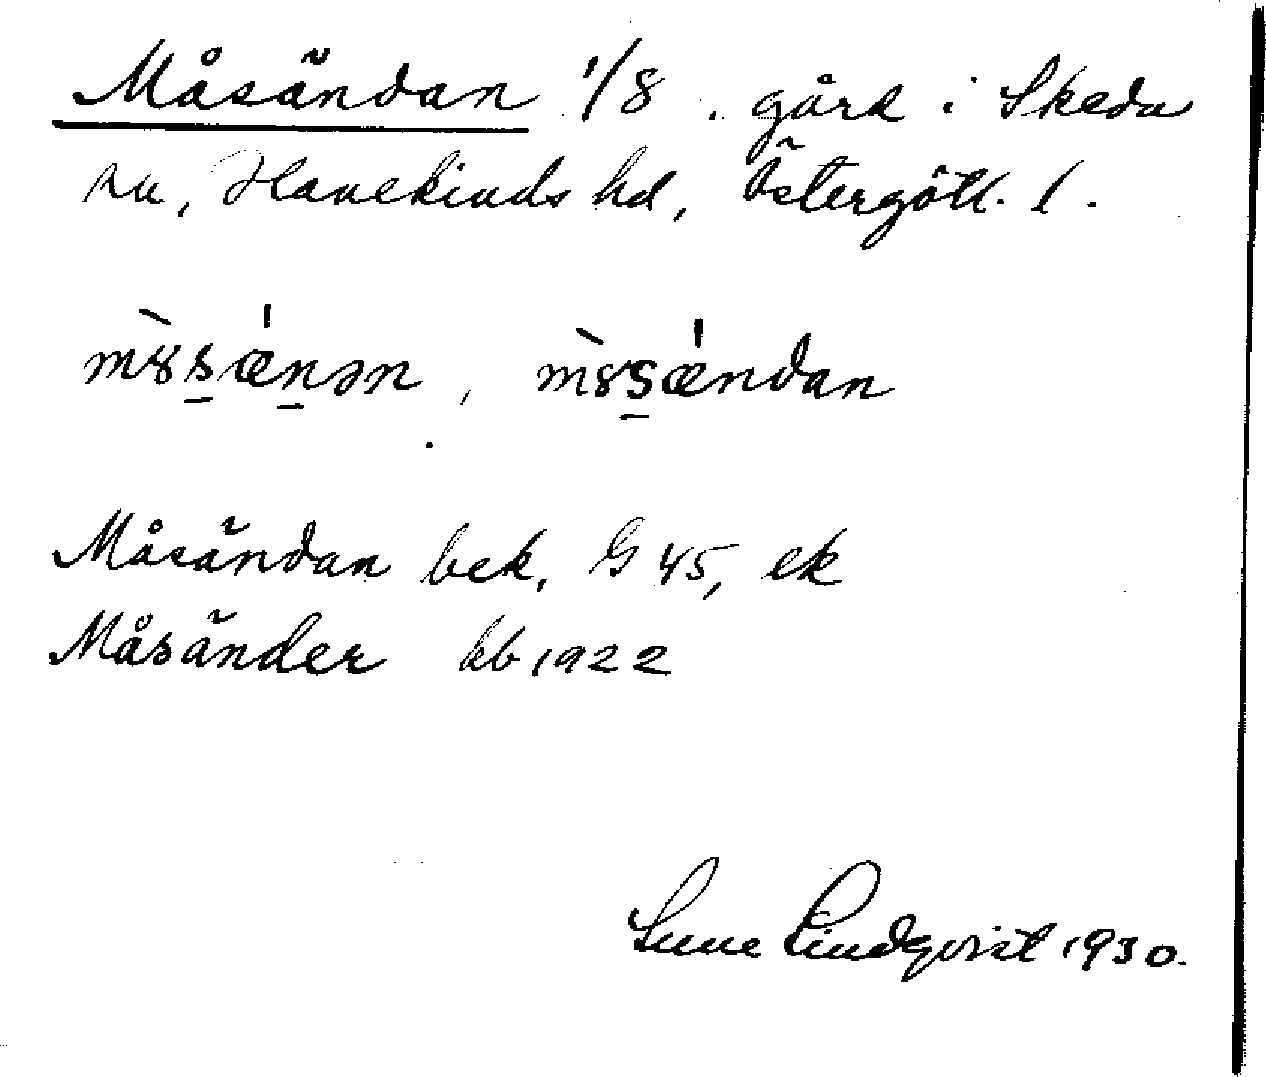 Måsändan 1/8. gård i Skeda
sn, Hanekinds hd, Östergötl. l.
m̀8s̱ǽṉən, m̀8s̱ǽndan
Måsändan bek. G 45, ek
Måsänder kb 1922
Sune Lindqvist 1930.